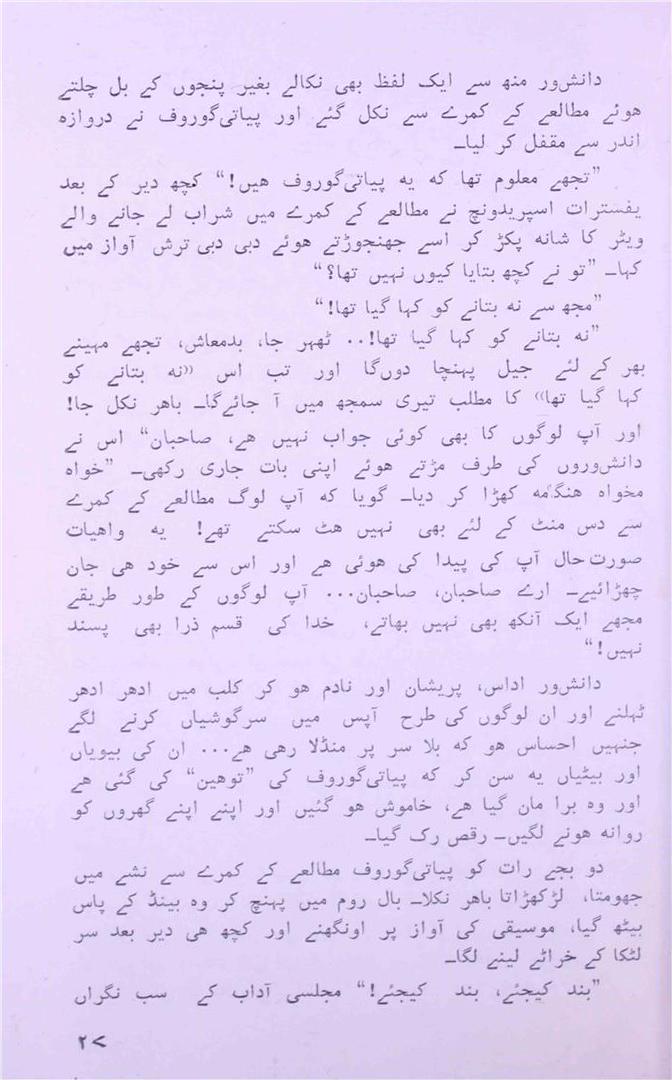 دانش‌ور منھ سے ایک لفظ بھی نکالے بغیر پنجوں کے بل چلتے
ہوئے مطالعے کے کمرے سے نکل گئے اور پیاتی‌گوروف نے دروازہ
اندر سے مقفل کر لیا۔
”تجھے معلوم تھا کہ یہ پیاتی‌گوروف ہیں!“ کچھ دیر کے بعد
یفسترات اسپریدونچ نے مطالعے کے کمرے میں شراب لے جانے والے
ویٹر کا شانہ پکڑ کر اسے جھنجوڑتے ہوئے دبی دبی ترش آواز میں
کہا۔ ”تو نے کچھ بتایا کیوں نہیں تھا؟“
”مجھ سے نہ بتانے کو کہا گیا تھا!“
”نہ بتانے کو کہا گیا تھا!.. ٹھہر جا، بدمعاش، تجھے مہینے
بھر کے لئے جیل پہنچا دوں‌گا اور تب اس «نہ بتانے کو
کہا گیا تھا» کا مطلب تیری سمجھ میں آ جائے‌گا۔ باہر نکل جا!
اور آپ لوگوں کا بھی کوئی جواب نہیں ہے، صاحبان“ اس نے
دانش‌وروں کی طرف مڑتے ہوئے اپنی بات جاری رکھی۔ ”خواہ
مخواہ ہنگامہ کھڑا کر دیا۔ گویا کہ آپ لوگ مطالعے کے کمرے
سے دس منٹ کے لئے بھی نہیں ہٹ سکتے تھے! یہ واہیات
صورت‌حال آپ کی پیدا کی ہوئی ہے اور اس سے خود ہی جان
چھڑائیے۔ ارے صاحبان، صاحبان... آپ لوگوں کے طور طریقے
مجھے ایک آنکھ بھی نہیں بھاتے، خدا کی قسم ذرا بھی پسند
نہیں!“
دانش‌ور اداس، پریشان اور نادم ہو کر کلب میں ادھر ادھر
ٹہلنے اور ان لوگوں کی طرح آپس میں سرگوشیاں کرنے لگے
جنہیں احساس ہو کہ بلا سر پر منڈلا رہی ہے... ان کی بیویاں
اور بیٹیاں یہ سن کر کہ پیاتی‌گوروف کی ”توہین“ کی گئی ہے
اور وہ برا مان گیا ہے، خاموش ہو گئیں اور اپنے اپنے گھروں کو
روانہ ہونے لگیں۔ رقص رک گیا۔
دو بجے رات کو پیاتی‌گوروف مطالعے کے کمرے سے نشے میں
جھومتا، لڑکھڑاتا باہر نکلا۔ بال روم میں پہنچ کر وہ بینڈ کے پاس
بیٹھ گیا، موسیقی کی آواز پر اونگھنے اور کچھ ہی دیر بعد سر
لٹکا کے خراٹے لینے لگا۔
”بند کیجئے، بند کیجئے!“ مجلسی آداب کے سب نگراں
۲۷